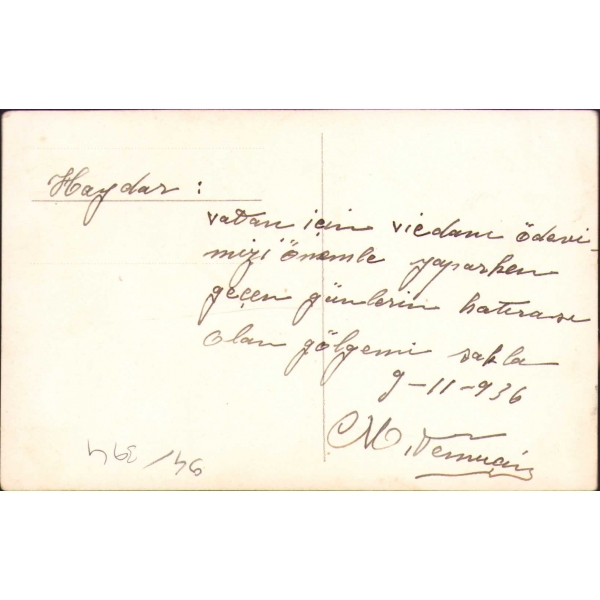 Haydar :
vatan için vicdani ödevi-
mizi önemle yaparken
geçen günlerin hatırası
olan gölgemi sakla
9-11-936
M.
94/394